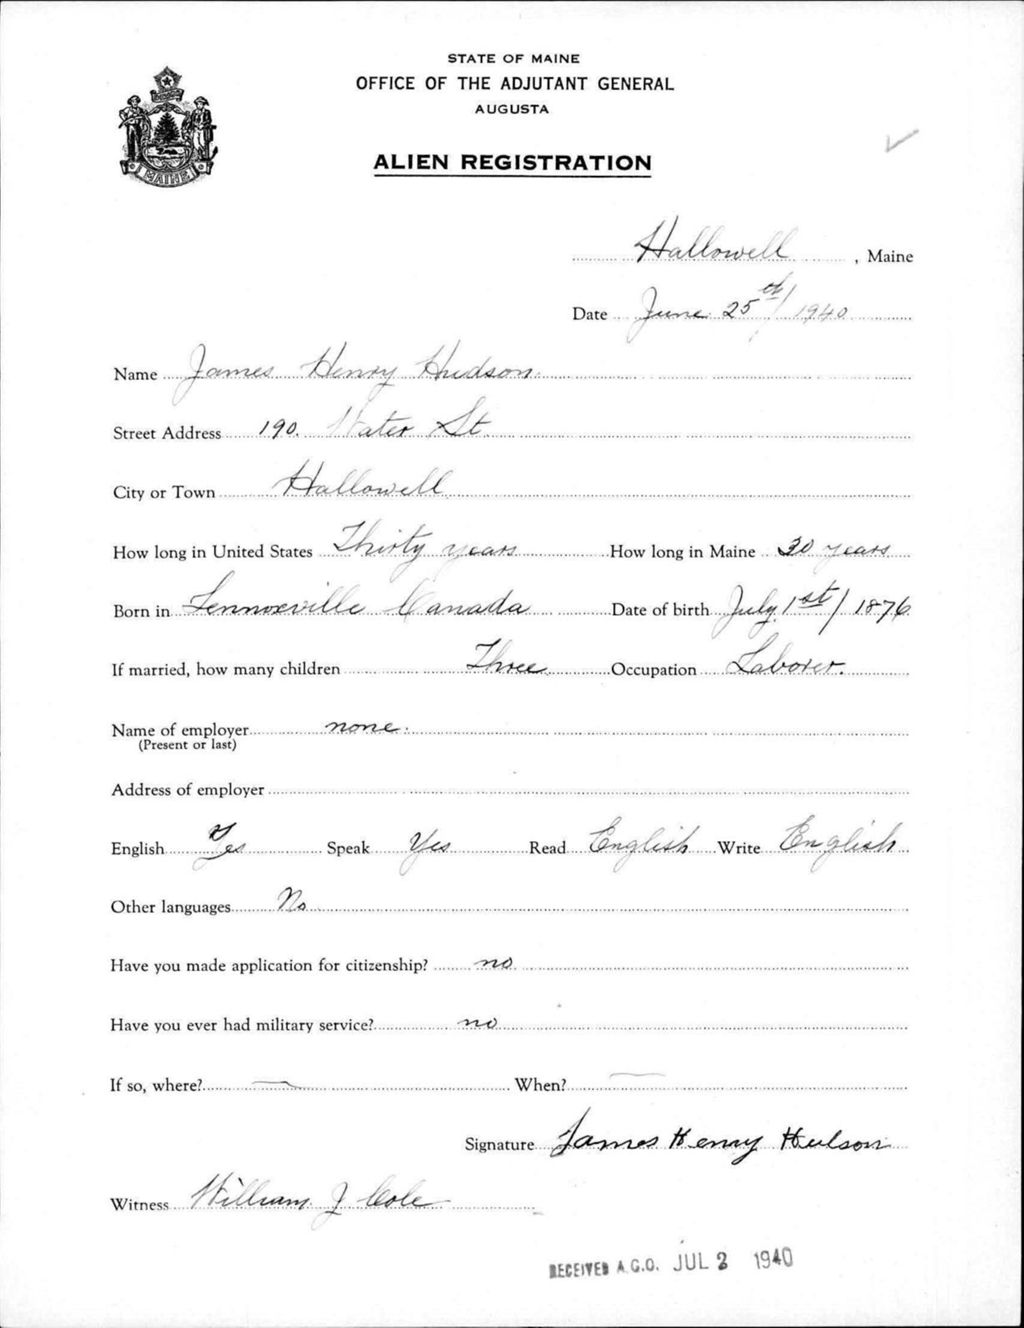 STATE OF MAINE
OFFICE OF THE ADJUTANT GENERAL
AUGUSTA
ALIEN REGISTRATION
MAINE
Hallowell, Maine
Date June 25th/1940
Name James Henry Hudson.
Street Address 190. Water St.
City or Town Hallowell
How long in United States Thirty years How long in Maine 30 years
Born in Lennoxville Canada Date of birth July 1st/1876
If married, how many children Three Occupation Laborer.
Name of employer none.
(Present or last)
Address of employer
English Yes Speak Yes Read English Write English
Other languages No
Have you made application for citizenship? no
Have you ever had military service? no
If so, where? — When? —
Signature James Henry Hudson
Witness William J Cole
RECEIVED A.G.O. JUL 2 1940